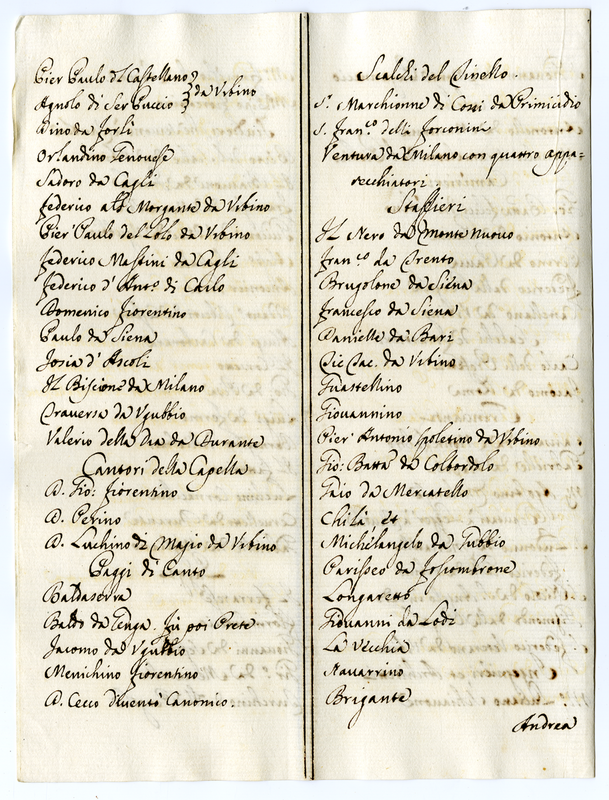 Pier Paulo del Castellano
Agnolo di Ser Puccio } da Vrbino
Dino da Forli
Orlandino Genouese
Sadoro da Cagli
Federico al.o Morgante da Vrbino
Pier Paulo del Polo da Vrbino
Federico Mastini da Cagli
Federico d'Ant.o di Carlo
Domenico Fiorentino
Paulo da Siena
Josia d'Ascoli
Il Biscione da Milano
Trauersa da Vgubbio
Valerio della Via da Durante
Cantori della Capella
D. Gio: Fiorentino
D. Perino
D. Luchino di Magio da Vrbino
Paggi di Canto
Baldaserra
Baldo da Penga. Fù poi Prete
Jacomo da Vgubbio
Menichino Fiorentino
D. Cecco diuentò Canonico.
Scalchi del Tinello.
S.r Marchionne di Cossi da Primicidio
S. Fran.co delli Forconini
Ventura da Milano con quattro appa=
recchiatori
Staffieri
Il Nero da Monte nuouo
Fran.co da Trento
Brugolone da Siena
Francesco da Siena
Danielle da Bari
Pie Jac. da Vrbino
Guastellino
Giouannino
Pier Antonio spoletino da Vrbino
Gio: Batta da Colbordolo
Gaio da Mercatello
Chila, et
Michelangelo da Gubbio
Parisseo da Fosiombrone
Longaretto
Giouanni da Lodi
La Vecchia
Nauarrino
Brigante
Andrea